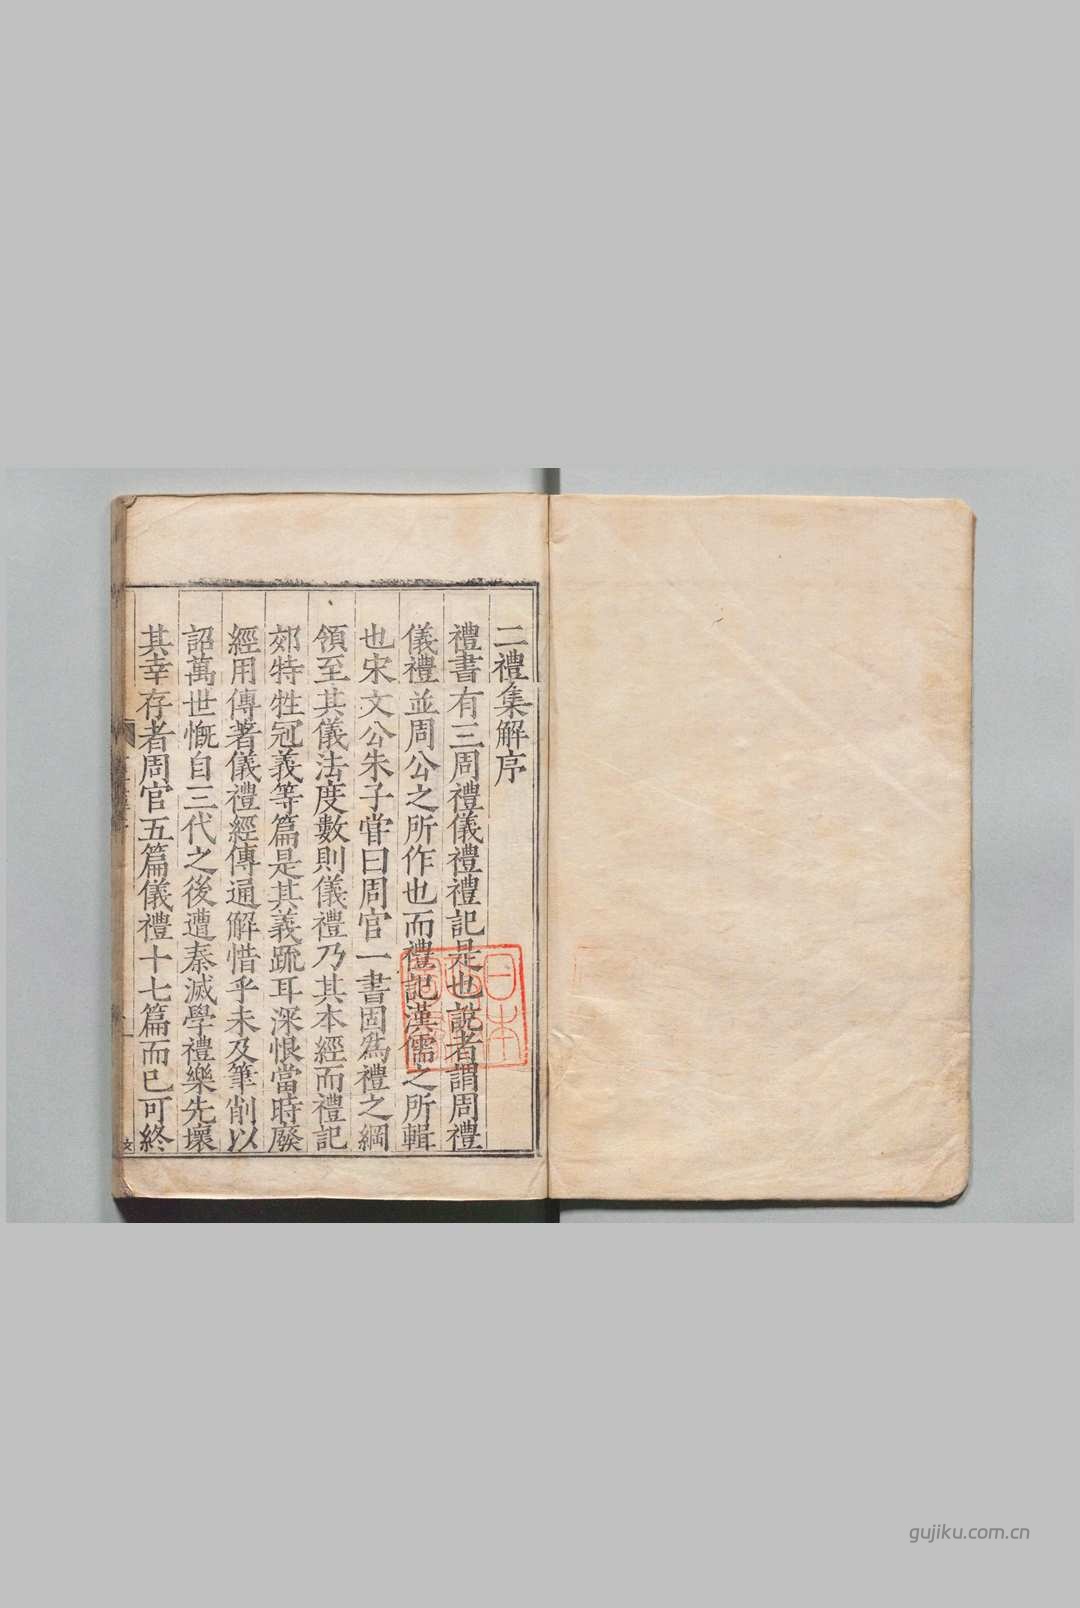 二禮集解序
禮書有三周禮儀禮禮記是也說者謂周禮
儀禮並周公之所作也而禮記漢儒之所輯
也宋文公朱子甞曰周官一書固爲禮之綱
領至其儀法度數則儀禮乃其本經而禮記
郊特牲冠義等篇是其義疏耳深恨當時廢
經用傳著儀禮經傳通解惜乎未及筆削以
詔萬世慨自三代之後遭秦滅學禮樂先壞
其幸存者周官五篇儀禮十七篇而已可終
日本
gujiku.com.cn